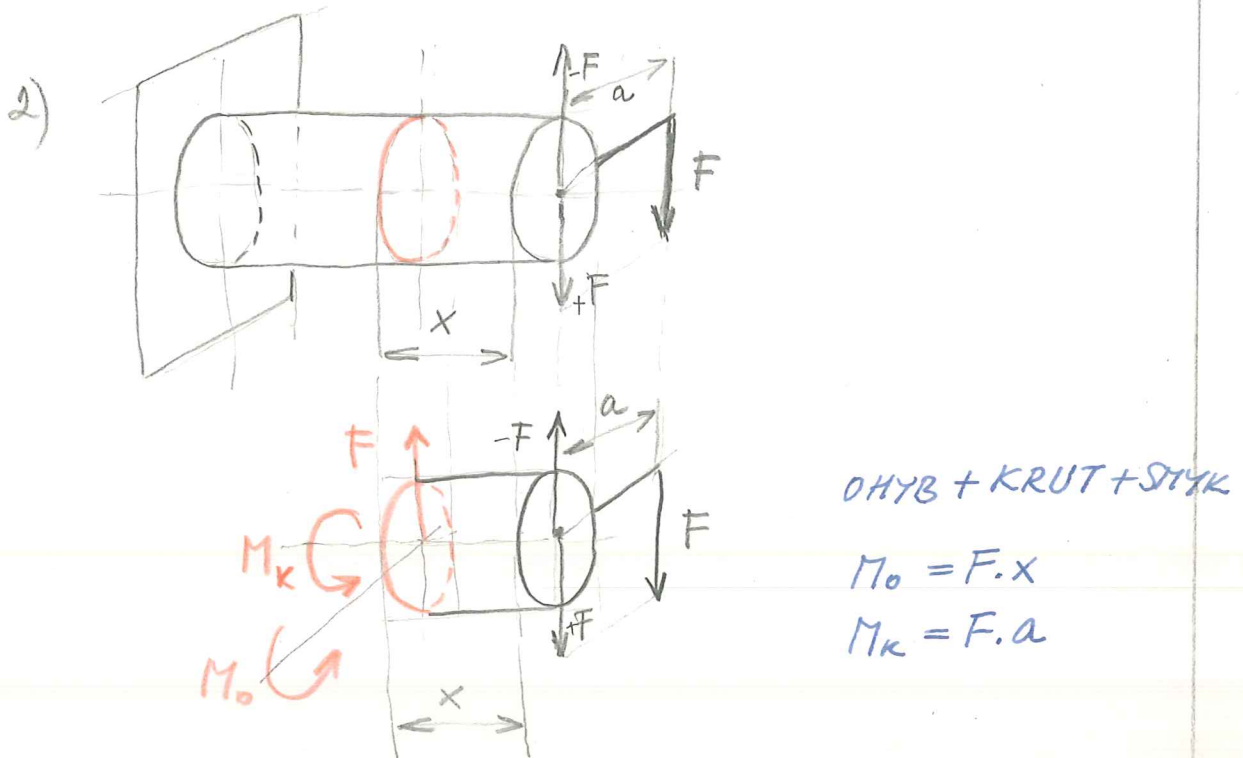 2)
-F
a
F
+F
x
a
F
-F
F
M_K
+F
M_o
x
OHYB + KRUT + SMYK
M_o = F.x
M_K = F.a